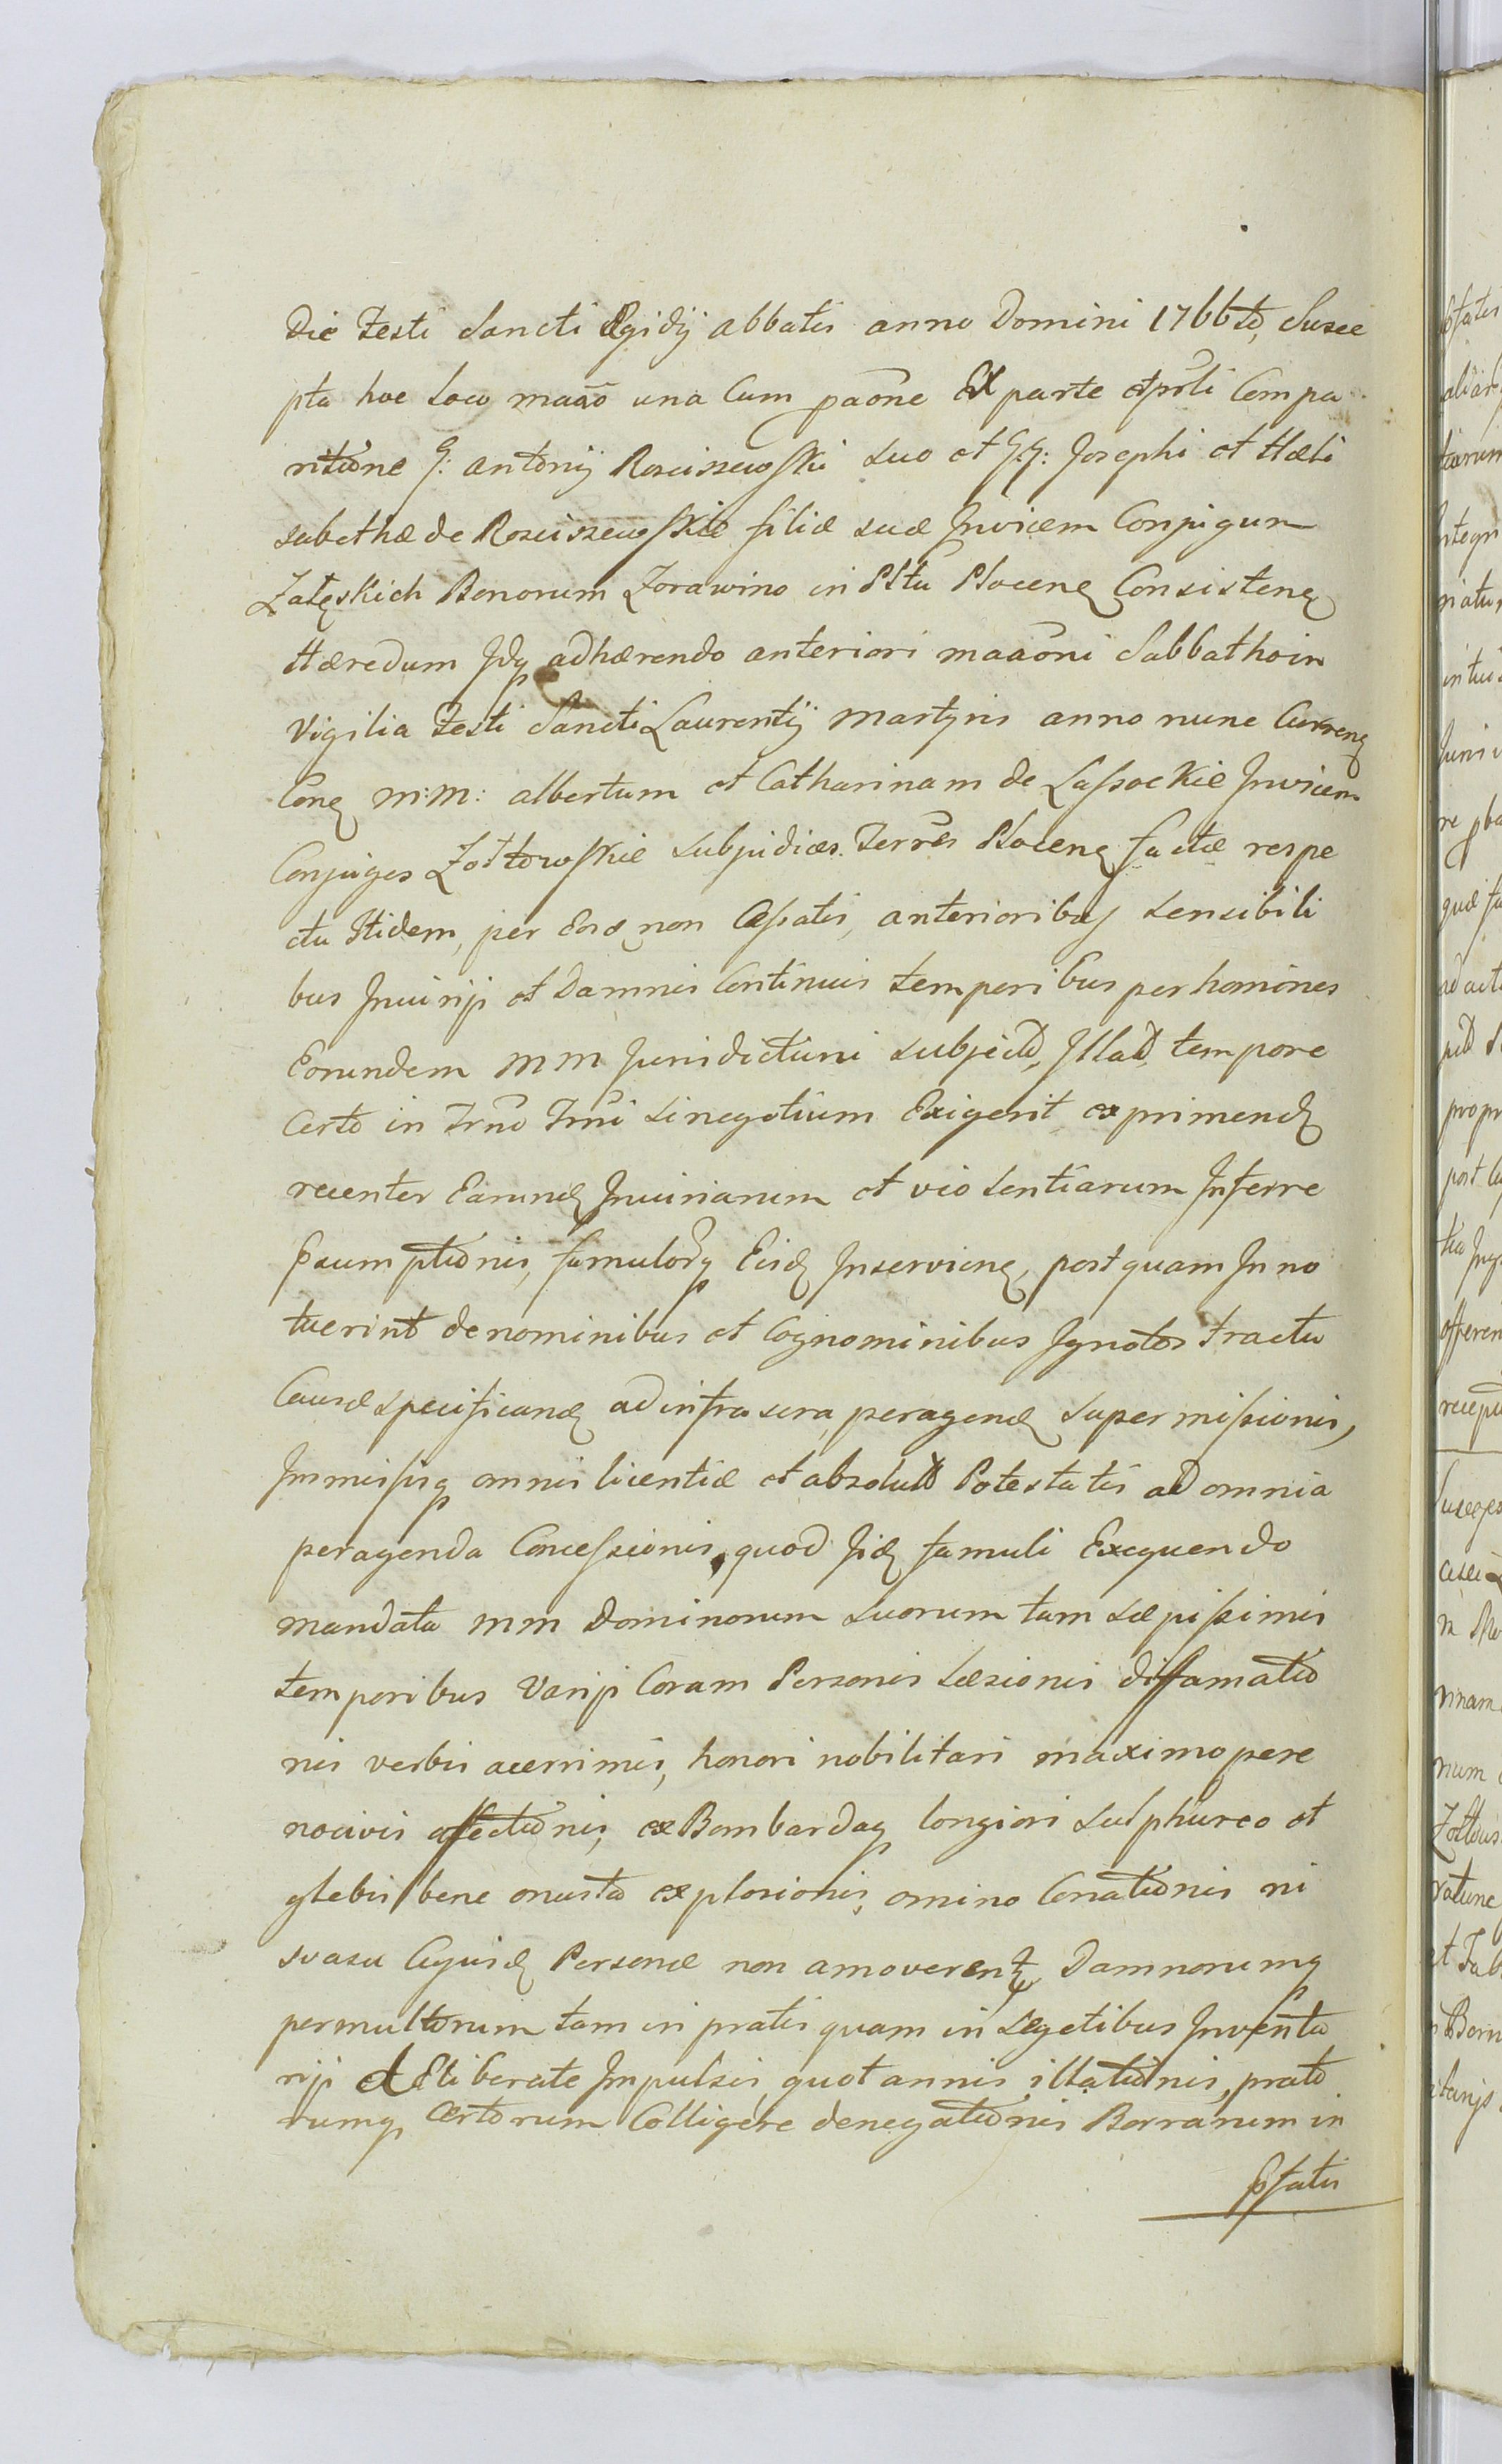 Die Festi Sancti Ægidij abbatis anno Domini 1766to, Susce
pta hoc Loco maão una Cum paõne Ex parte et prli Compa
ritione G: Antonij Rosciszewski suo et G.G: Josephi et Hæli
sabethæ de Rosciszewskie filiæ suæ Invicem Conjugum
Załęskich Bonorum Zorawino in Pltu Plocenę Consistenę
Hæredum Idq adhærendo anteriori maaõni Sabbathoin
Vigilia Festi Sancti Laurentij Martyris anno nunc Currenę
Conę M:M: Albertum et Catharinam de Lassockie Invicem
Conjuges Zołtowskie Subjudices Terrēs Plocenę factæ respe
ctu Itidem, per Eosdę non Cessatis, anterioribus sensibili
bus Injurijs et Damnis Continuis temporibus per homines
Eorundem MM Jurisdictioni subjectos, Illatis tempore
Certo in Trno Trni si negotium Exigerit exprimendę
recenter Earundę Injuriarum et violentiarum Inferre
Præsumptionis, famulorq Eisdę Inservienę, postquam Inno
tuerint de nominibus et Cognominibus Ignotos tractu
Causæ specificandę ad infra scra peragendę Supermissionis,
Immissisq omnis licentiæ et absolutæ Potestatis ad omnia
peragenda Concessionis, quod Iidę famuli Exequendo
mandata MM Dominorum Suorum tam sæpissimis
temporibus Varijs Coram Personis Læsionis diffamatio
nis verbis acerrimis, honori nobilitari maximopere
nocivis affectionis, ex Bombardaq longiori Sulphureo et
glebis bene onusta explosionis, omino Conationis ni
svasu Cujusdę Personæ non amoverentur Damnorumq
permultorum tam in pratis quam in Segetibus Inventa
rijs deliberate Impulsis, quot annis illationis, prato
rumq Certorum Colligere denegationis Borrarum in
pfatis